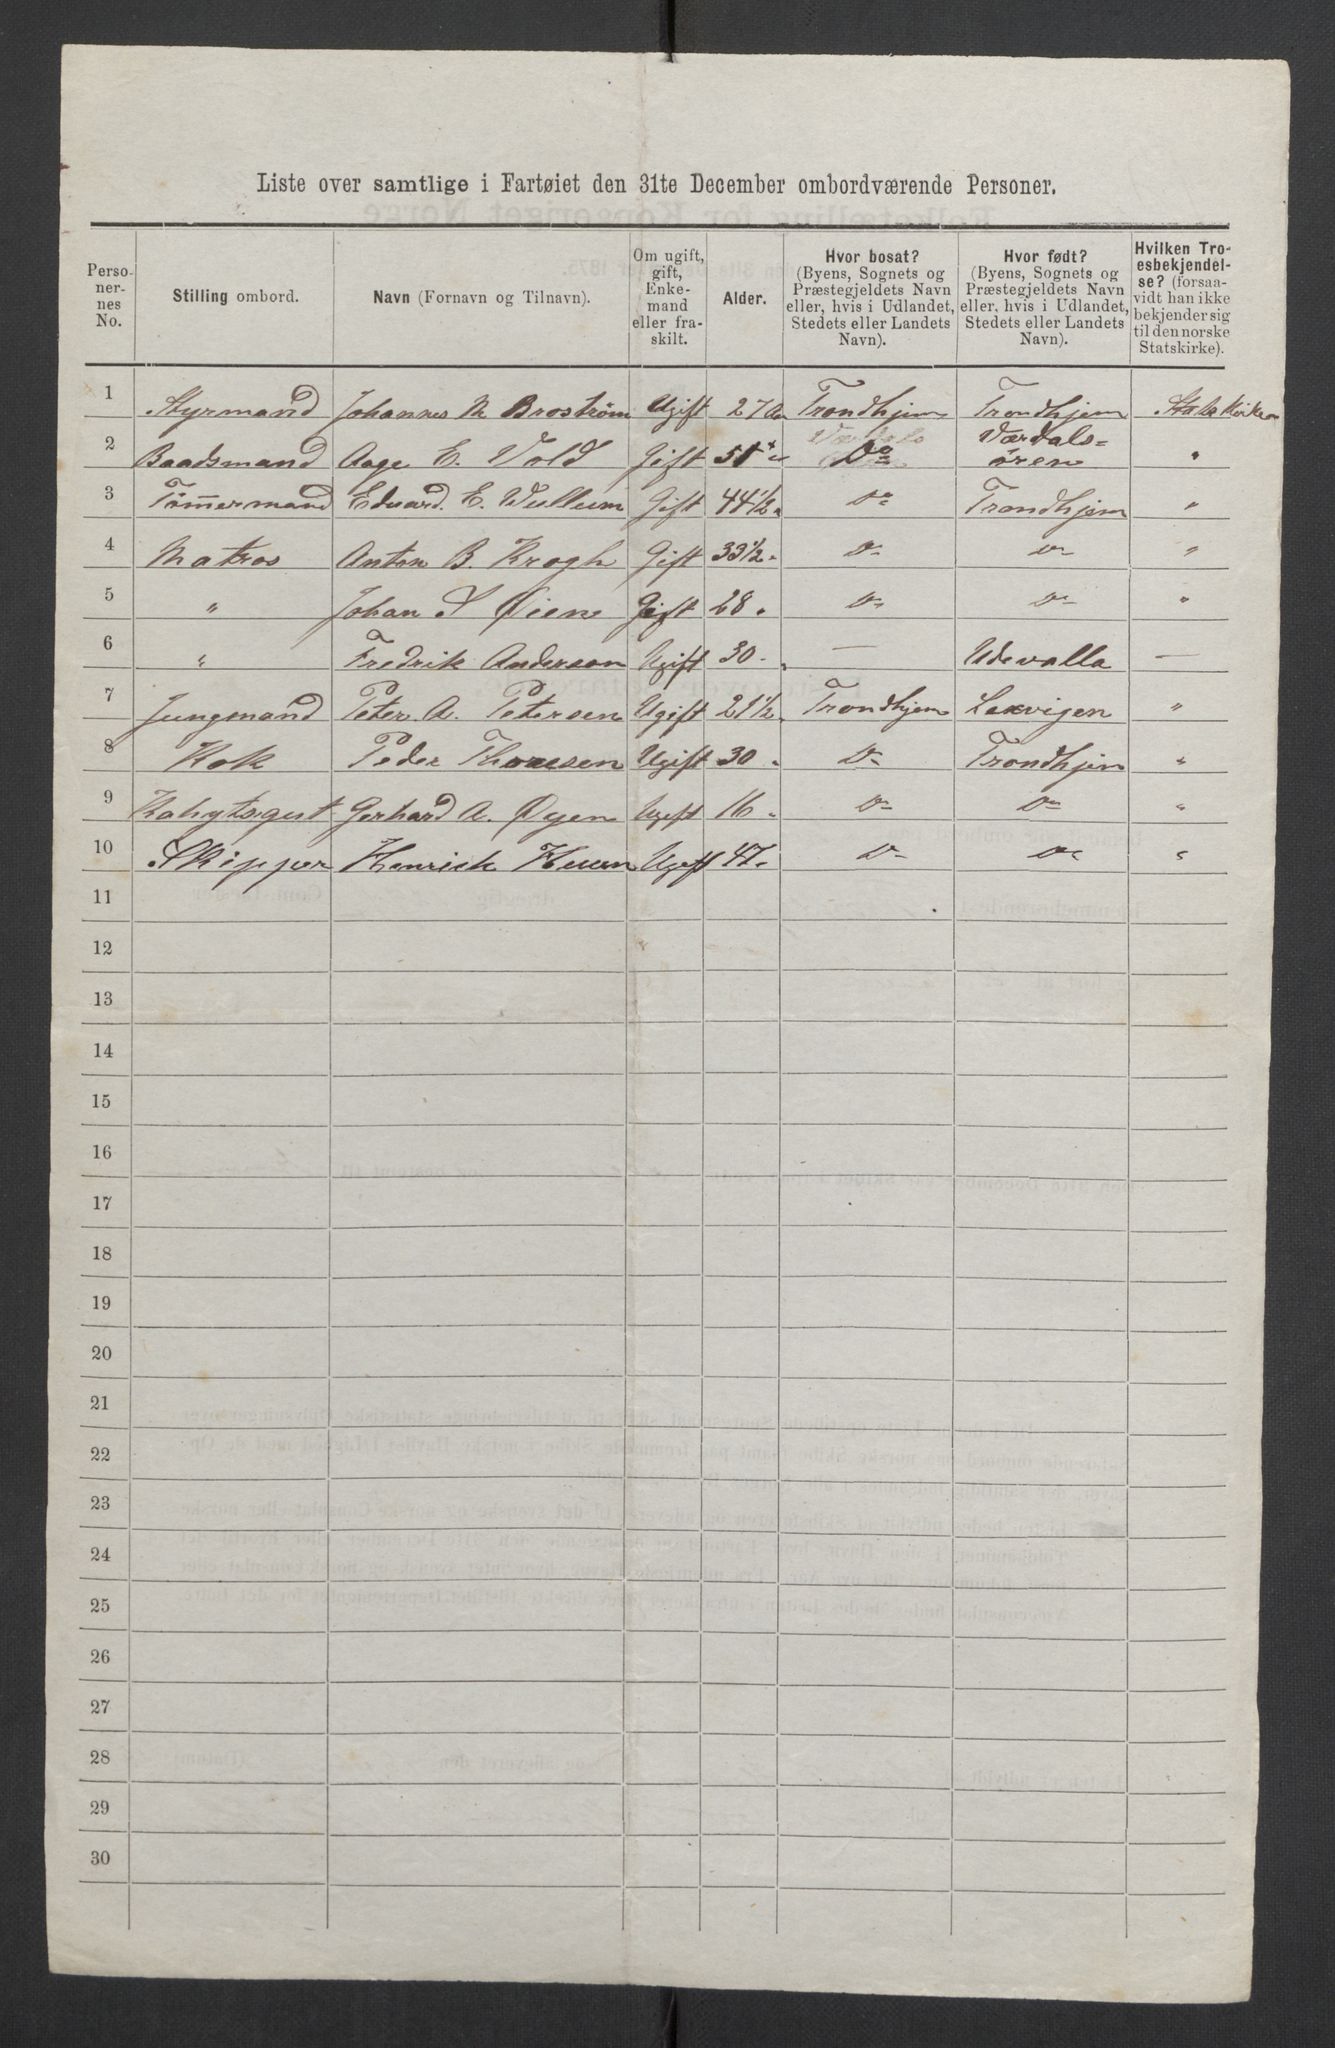 Liste over samtlige i Fartøiet den 31te December ombordværende Personer.
Perso-
ner-
nes
No.
Stilling ombord.
Navn (Fornavn og Tilnavn).
Om ugift,
gift,
Enke-
mand
eller fra-
skilt.
Alder.
Hvor bosat?
(Byens, Sognets og
Præstegjeldets Navn
eller, hvis i Udlandet,
Stedets eller Landets
Navn).
Hvor født?
(Byens, Sognets og
Præstegjeldets Navn
eller, hvis i Udlandet,
Stedets eller Landets
Navn).
Hvilken Tro-
esbekjendel-
se? (forsaa-
vidt han ikke
bekjender sig
til den norske
Statskirke).
1 Styrmand Johannes M Broström Ugift 27 Aar Trondhjem Trondhjem Statskirken
2 Baadsmand Aage E. Vold Gift 51 " Do Værdals=
ören "
3 Tömmermand Eduard. E. Wullum Gift 44 1/2 " Do Trondhjem "
4 Matros Anton B. Krogh Gift 33 1/2 " Do Do "
5 " Johan S Øien Gift 28 " Do Do "
6 " Fredrik Anderson Ugift 30 " — Udevalla —
7 Jungmand Peter A. Petersen Ugift 21 1/2 " Trondhjem Laxvigen "
8 Kok Peder Thoresen Ugift 30 " Do Trondhjem "
9 Kahytsgut Gerhard A. Øyen Ugift 16 " Do Do "
10 Skipper Henrick Huun Ugift 47 " Do Do "
11
12
13
14
15
16
17
18
19
20
21
22
23
24
25
26
27
28
29
30